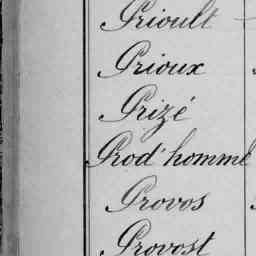 Prioult
Prioux
Prizé
Prod'homme
Provos
Provost